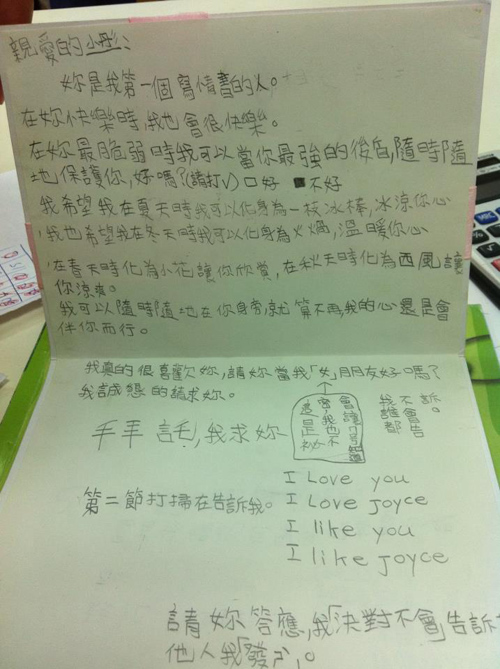 親愛的小彤：
妳是我第一個寫情書的人。
在妳快樂時,我也會很快樂。
在妳最脆弱時我可以當你最強的後盾,隨時隨
地保護你,好嗎?(請打V) □好 ■不好
我希望我在夏天時我可以化身為一枝冰棒,冰涼你心
我也希望我在冬天時我可以化身為火爐,溫暖你心
在春天時化為小花讓你欣賞,在秋天時化為西風讓
你涼爽。
我可以隨時隨地在你身旁,就算不再,我的心還是會
伴你而行。
我真的很喜歡妳,請妳當我「女」朋友好嗎?
我誠懇的請求妳。
拜託,我求妳
這是祕
會讓
我不會告訴
I Love you
I Love Joyce
I like you
I like Joyce
第二節打掃在告訴我。
請妳答應,我「決對不會」告訴
他人我「發」。